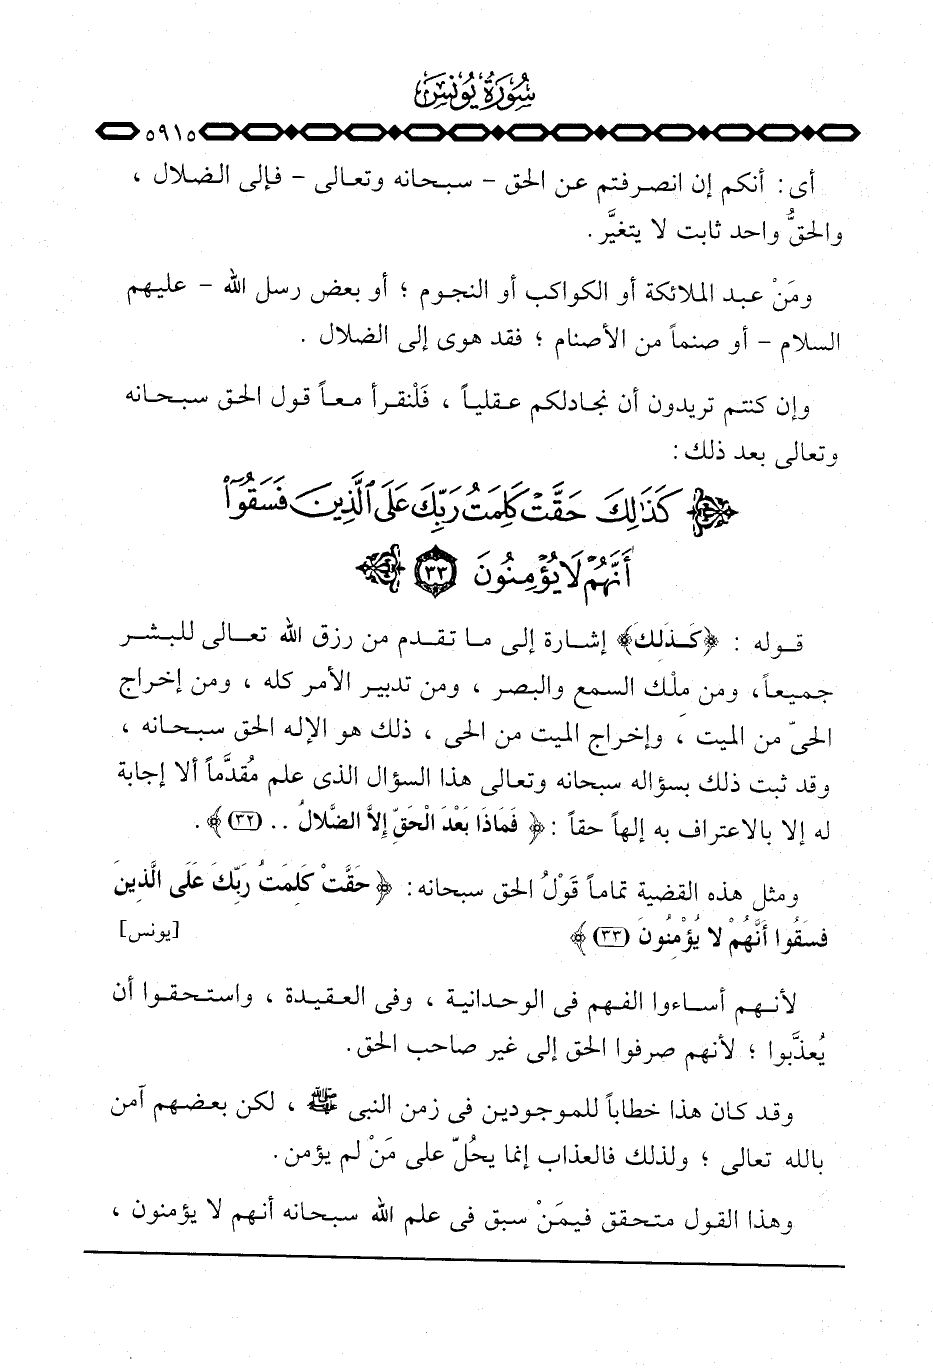 سُورَةُ يُونُسَ
٥٩١٥
أى : أنكم إن انصرفتم عن الحق – سبحانه وتعالى – فإلى الضلال ،
والحقُّ واحد ثابت لا يتغيَّر .
ومَنْ عبد الملائكة أو الكواكب أو النجوم ؛ أو بعض رسل الله – عليهم
السلام – أو صنماً من الأصنام ؛ فقد هوى إلى الضلال .
وإن كنتم تريدون أن نجادلكم عقلياً ، فَلْنقرأ معاً قول الحق سبحانه
وتعالى بعد ذلك :
﴿ كَذَٰلِكَ حَقَّتْ كَلِمَتُ رَبِّكَ عَلَى ٱلَّذِينَ فَسَقُوٓا۟
أَنَّهُمْ لَا يُؤْمِنُونَ ٣٣ ﴾
قوله : ﴿كَذَلكَ﴾ إشارة إلى ما تقدم من رزق الله تعالى للبشر
جميعاً، ومن مِلْك السمع والبصر ، ومن تدبير الأمر كله ، ومن إخراج
الحىّ من الميت ، وإخراج الميت من الحى ، ذلك هو الإله الحق سبحانه ،
وقد ثبت ذلك بسؤاله سبحانه وتعالى هذا السؤال الذى علم مُقدَّماً ألا إجابة
له إلا بالاعتراف به إلهاً حقاً : ﴿ فَمَاذَا بَعْدَ الْحَقِّ إِلاَّ الضَّلالُ .. (٣٢) ﴾ .
ومثل هذه القضية تماماً قَوْلُ الحق سبحانه: ﴿ حَقَّتْ كَلِمَتُ رَبِّكَ عَلَى الَّذِينَ
فَسَقُوا أَنَّهُمْ لا يُؤْمِنُونَ (٣٣) ﴾ [يونس]
لأنهم أساءوا الفهم فى الوحدانية ، وفى العقيدة ، واستحقوا أن
يُعذَّبوا ؛ لأنهم صرفوا الحق إلى غير صاحب الحق.
وقد كان هذا خطاباً للموجودين فى زمن النبى ﷺ ، لكن بعضهم آمن
بالله تعالى ؛ ولذلك فالعذاب إنما يحُلّ على مَنْ لم يؤمن.
وهذا القول متحقق فيمَنْ سبق فى علم الله سبحانه أنهم لا يؤمنون ،